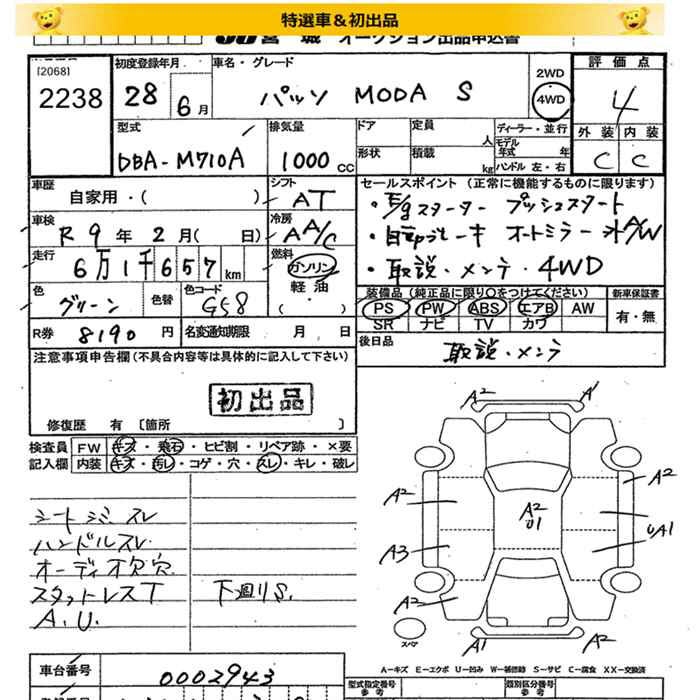 特選車＆初出品
JU 宮城 オークション出品申込書
[2068]
2238
初度登録年月
28 6月
車名・グレード
パッソ MODA S
2WD
4WD
評価点
4
外装 内装
C C
型式
DBA-M710A
排気量
1000 CC
ドア
定員
人
形状
積載
kg
ディーラー・並行
モデル年式 年
ハンドル 左・右
車歴
自家用・( )
シフト
AT
車検
R 9 年 2 月( 日)
冷房
AA/C
走行
6万1千657 km
燃料
ガソリン
軽油
( )
色
グリーン
色替
色コード
G58
R券 8190 円
名変通知期限 月 日
セールスポイント (正常に機能するものに限ります)
・E/gスターター プッシュスタート
・オートミラー 社A/W
・取説・メンテ・4WD
装備品 (純正品に限り○をつけてください)
新車保証書
PS PW ABS エアB AW
SR ナビ TV カワ
有・無
後日品
取説・メンテ
注意事項申告欄 (不具合内容等は具体的に記入して下さい)
初出品
修復歴 有 〔箇所 〕
検査員記入欄
FW キズ・飛石・ヒビ割・リペア跡・×要
内装 キズ・汚レ・コゲ・穴・スレ・キレ・破レ
シートシミ スレ
ハンドルスレ
オーディオ欠 穴
スタットレスT
A.U.
下廻りS.
A2
A1
A2
A2
A2
U1
A3
UA1
A2
A1
A2
スペア
A－キズ E－エクボ U－凹み W－補修跡 S－サビ C－腐食 XX－交換済
車台番号
0002943
型式指定番号
参考
類別区分番号
参考